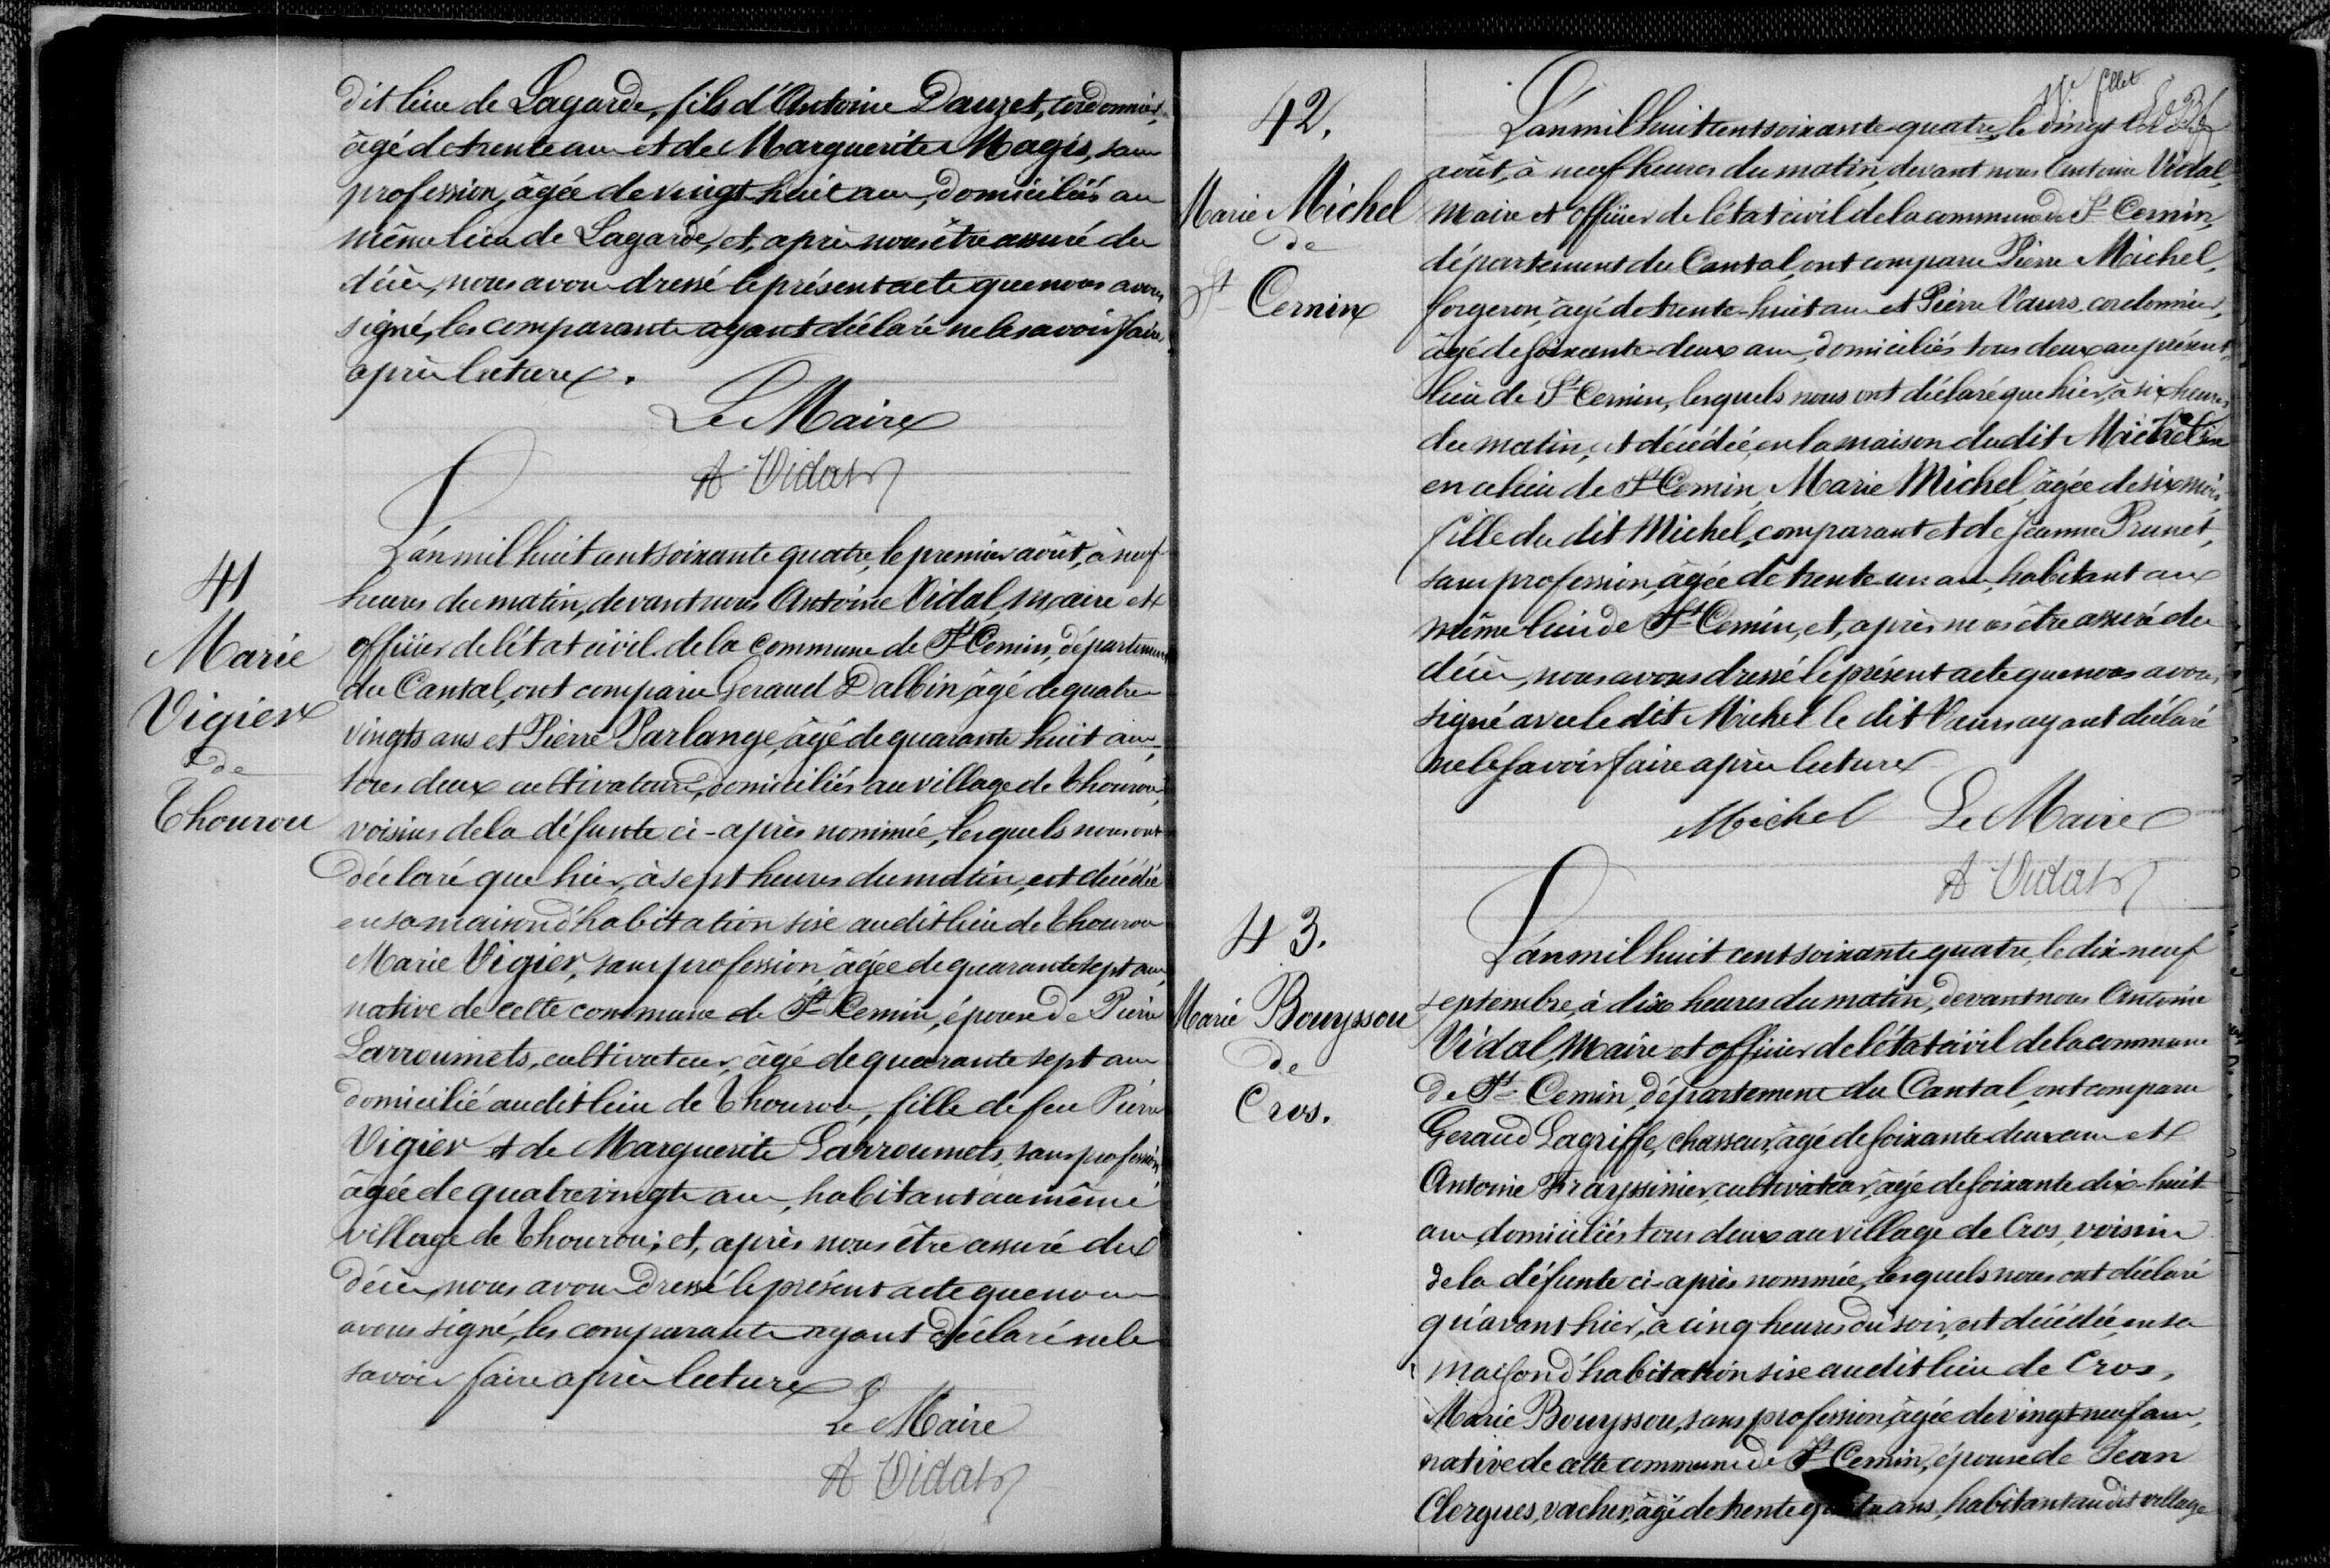 dit lieu de Lagarde, fils d'Antoine Dauzet, cordonnier,
âgé de trente ans et de Marguerite Magis, sans
profession, âgée de vingt-huit ans, domiciliés au
même lieu de Lagarde, et, après nous être assuré du
décès, nous avons dressé le présent acte que nous avons
signé, les comparants ayant déclaré ne le savoir faire,
après lecture.
Le Maire
A Vidal
41
Marie
Vigier
de
Thourou
L'an mil huit cent soixante quatre, le premier août, à neuf
heures du matin, devant nous Antoine Vidal, maire et
officier de l'état civil de la commune de St Cernin, département
du Cantal, ont comparu Geraud Dalbin, âgé de quatre
vingts ans et Pierre Parlange, âgé de quarante huit ans,
tous deux cultivateurs, domiciliés au village de Thourou,
voisins de la défunte ci-après nommée, lesquels nous ont
déclaré que hier, à sept heures du matin, est décédée
en sa maison d'habitation sise audit lieu de Thourou
Marie Vigier, sans profession, âgée de quarante sept ans,
native de cette commune de St Cernin, épouse de Pierre
Larroumets, cultivateur, âgé de quarante sept ans
domicilié audit lieu de Thourou, fille de feu Pierre
Vigier et de Marguerite Larroumets, sans profession,
âgée de quatre vingts ans, habitant au même
village de Thourou; et, après nous être assuré du
décès, nous avons dressé le présent acte que nous
avons signé, les comparants ayant déclaré ne le
savoir faire après lecture
Le Maire
A Vidal
42.
Marie Michel
de
St Cernin
L'an mil huit cent soixante-quatre, le vingt
août, à neuf heures du matin, devant nous Antoine Vidal,
maire et officier de l'état civil de la commune de St Cernin,
département du Cantal, ont comparu Pierre Michel,
forgeron, âgé de trente-huit ans et Pierre Vaurs, cordonnier,
âgé de soixante-deux ans, domiciliés tous deux au présent
lieu de St Cernin, lesquels nous ont déclaré que hier, à six heures
du matin, est décédée, en la maison du dit Michel sise
en ce lieu de St Cernin, Marie Michel, âgée de six mois,
fille du dit Michel, comparant et de Jeanne Prunet,
sans profession, âgée de trente un ans, habitant au
même lieu de St Cernin, et, après nous être assuré du
décès, nous avons dressé le présent acte que nous avons
signé avec le dit Michel le dit Vaurs ayant déclaré
ne le savoir faire après lecture
Michel Le Maire
A Vidal
43.
Marie Bouyssou
de
Cros.
L'an mil huit cent soixante quatre, le dix-neuf
septembre, à dix heures du matin, devant nous Antoine
Vidal, Maire et officier de l'état civil de la commune
de St Cernin, département du Cantal, ont comparu
Geraud Lagriffe, chasseur, âgé de soixante deux ans et
Antoine Frayssinier, cultivateur, âgé de soixante dix-huit
ans, domiciliés tous deux au village de Cros, voisins
de la défunte ci-après nommée, lesquels nous ont déclaré
qu'avant hier, à cinq heures du soir, est décédée, en sa
maison d'habitation sise audit lieu de Cros,
Marie Bouyssou, sans profession, âgée de vingt neuf ans,
native de cette commune de St Cernin, épouse de Jean
Clergues, vacher, âgé de trente quatre ans, habitant audit village